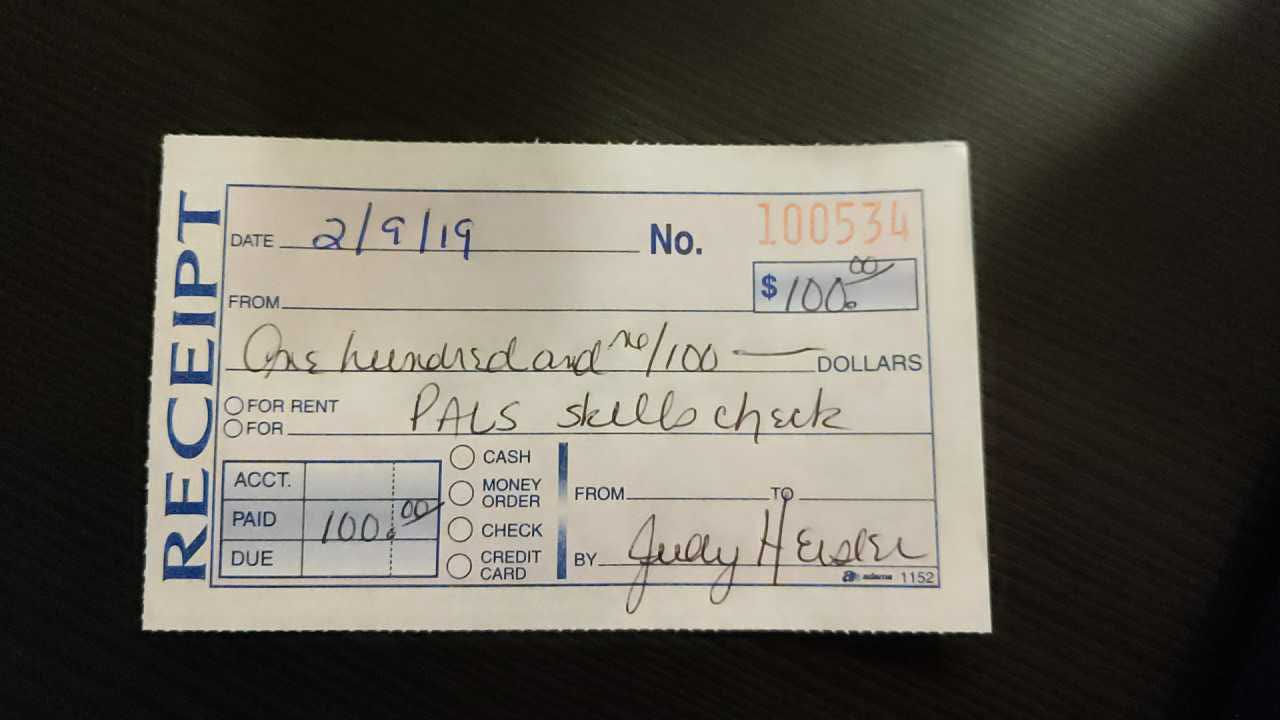 RECEIPT
DATE 2/9/19 No. 100534
$ 100.00
FROM
One hundred and no/100 DOLLARS
FOR RENT
FOR PALS skills check
ACCT.
PAID 100.00
DUE
CASH
MONEY ORDER
CHECK
CREDIT CARD
FROM TO
BY Judy Heisler
adams 1152